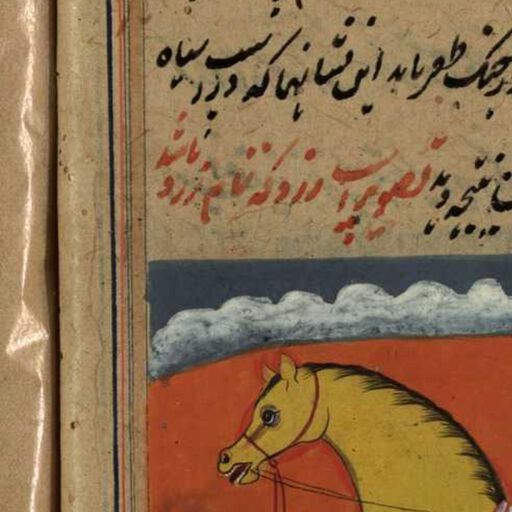 جنک ظفر یابد این نشانهها که در اسب سیاه
نتیجه دید تصویر اسپ زرد که تمام زرد باشد